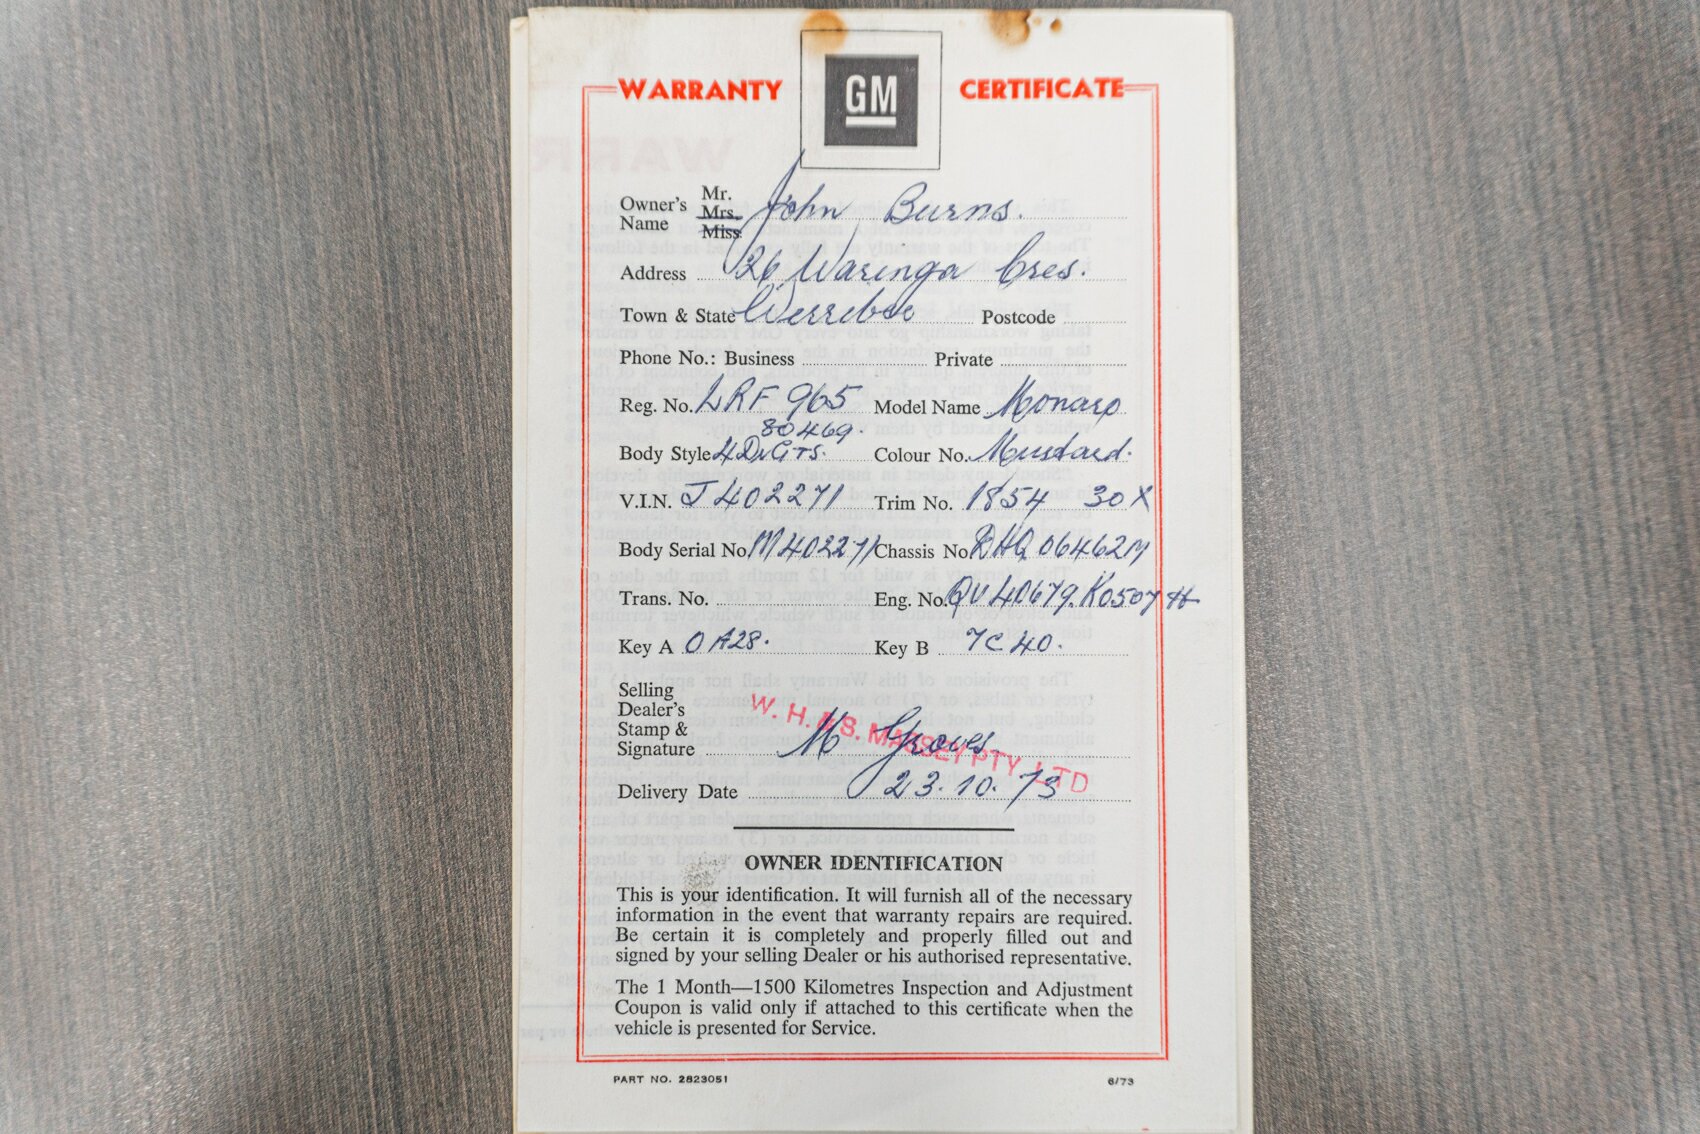 WARRANTY GM CERTIFICATE
Owner's Name Mr. Mrs. Miss. John Burns.
Address 26 Waringa Cres.
Town & State Werribee Postcode
Phone No.: Business Private
Reg. No. LRF 965 Model Name Monaro
80469.
Body Style 4 Dr GTS. Colour No. Mustard.
V.I.N. J402271 Trim No. 1854 30X
Body Serial No. M402271 Chassis No. RHQ06462M
Trans. No. Eng. No. QU40679.K0507H
Key A 0A28. Key B 7C40.
Selling
Dealer's
Stamp &
Signature M Groves
W. H. S. MASSEY PTY. LTD
Delivery Date 23.10.73
OWNER IDENTIFICATION
This is your identification. It will furnish all of the necessary
information in the event that warranty repairs are required.
Be certain it is completely and properly filled out and
signed by your selling Dealer or his authorised representative.
The 1 Month—1500 Kilometres Inspection and Adjustment
Coupon is valid only if attached to this certificate when the
vehicle is presented for Service.
PART NO. 2823051 6/73